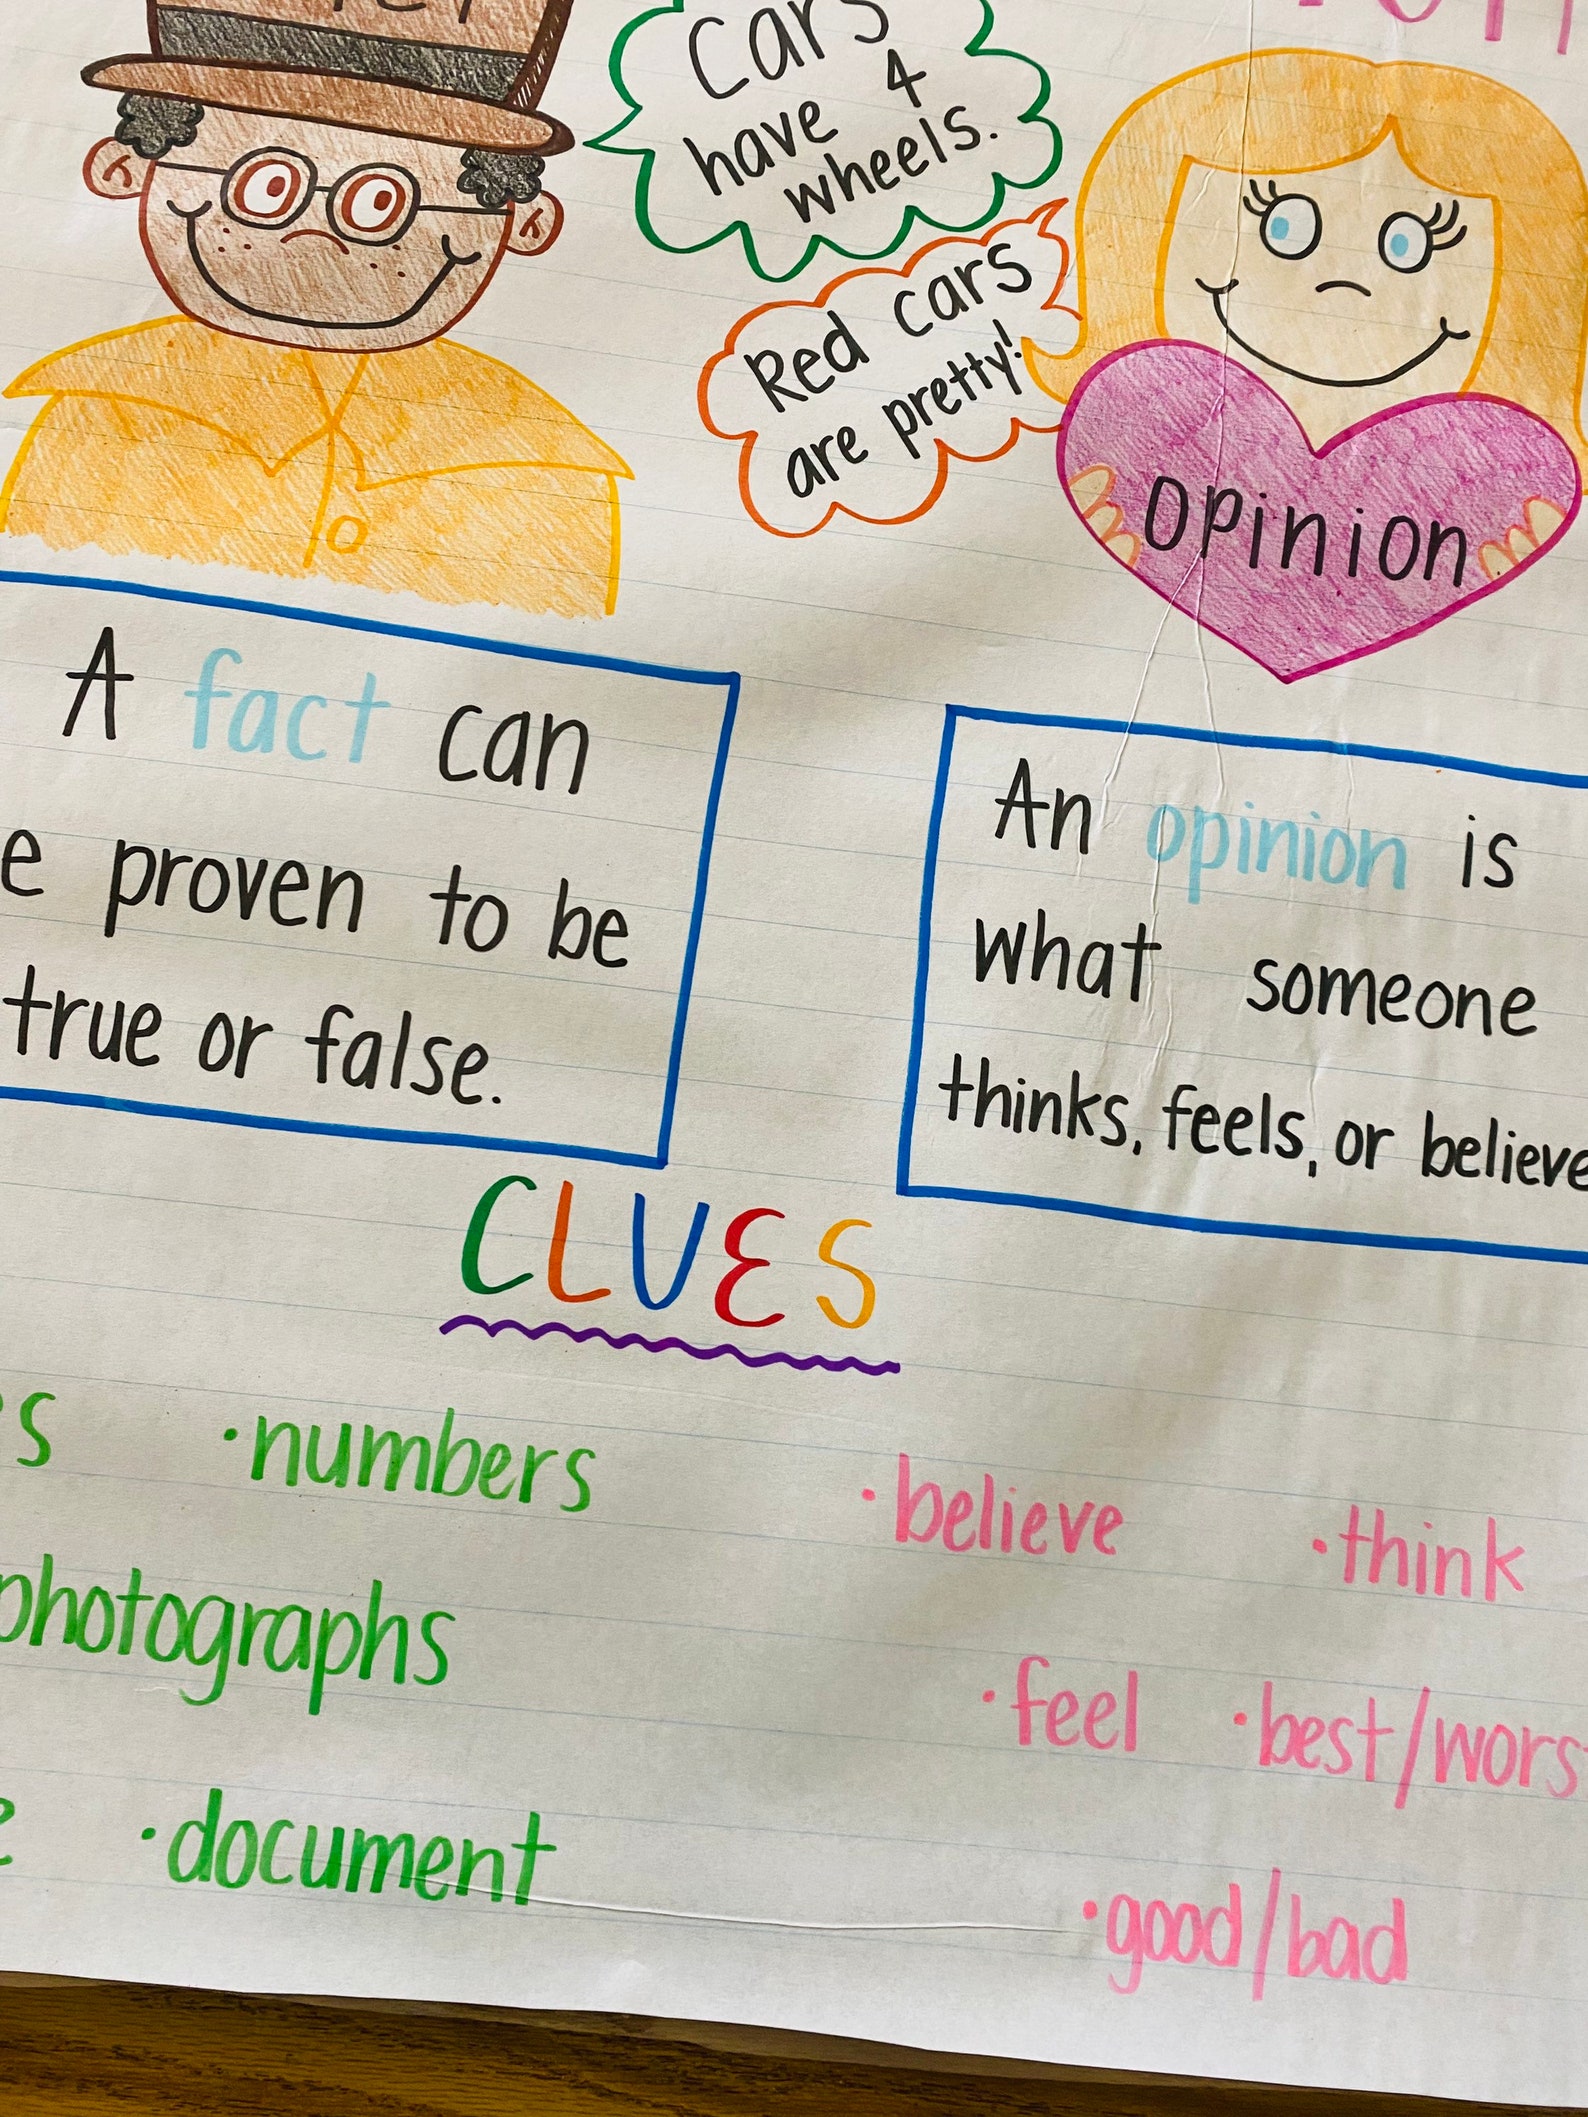 Cars
have 4
wheels.
Red cars
are pretty!
opinion
A fact can
e proven to be
true or false.
An opinion is
what someone
thinks, feels, or believe
CLUES
s •numbers
photographs
•document
•believe •think
•feel •best/wors
•good/bad